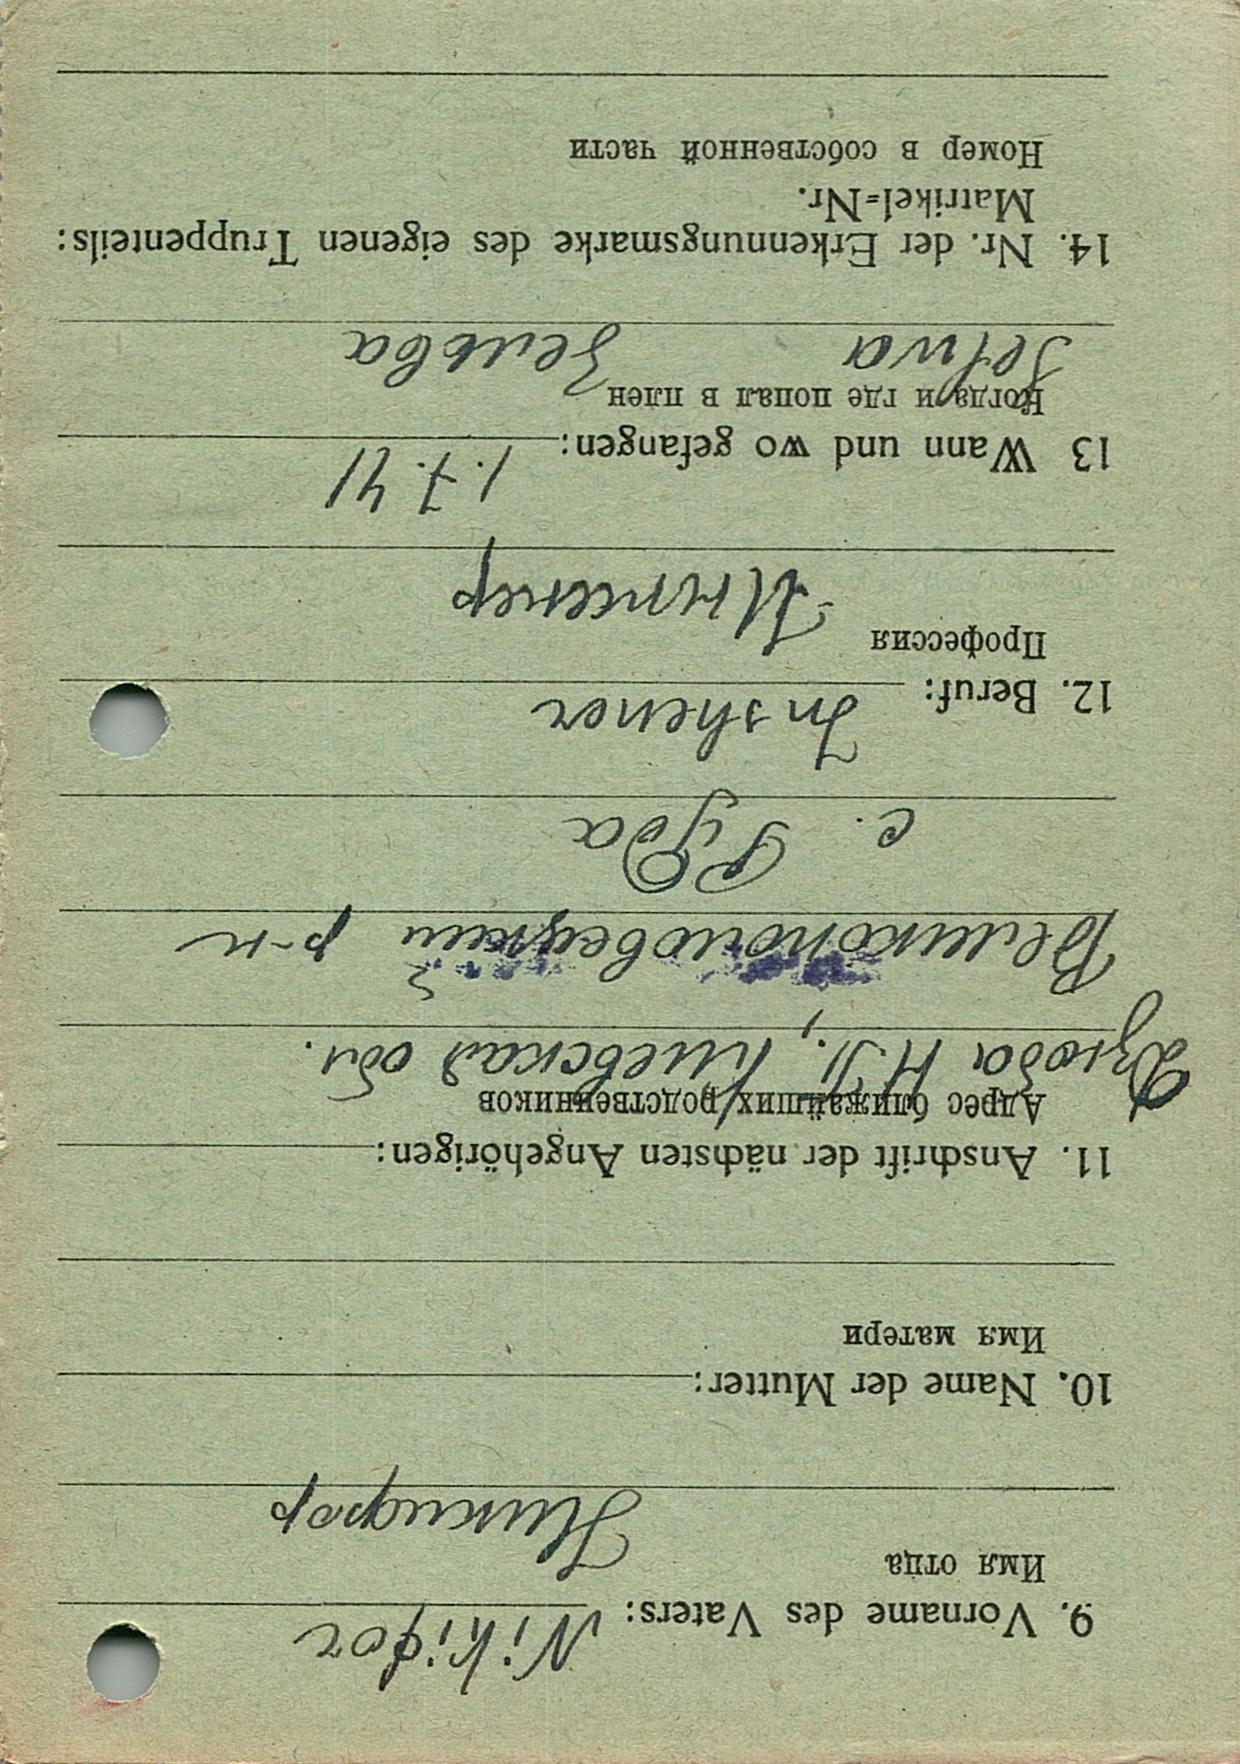 9. Vorname des Vaters: Nikifor
Имя отца
Никифор
10. Name der Mutter:
Имя матери
11. Anschrift der nächsten Angehörigen:
Адрес ближайших родственников
Дзюба Н.П., Киевская обл.
р-н
с. Руда
12. Beruf: Inshener
Профессия
Инженер
13 Wann und wo gefangen: 1.7.41
Когда и где попал в плен
Selwa Зельва
14. Nr. der Erkennungsmarke des eigenen Truppenteils:
Matrikel=Nr.
Номер в собственной части